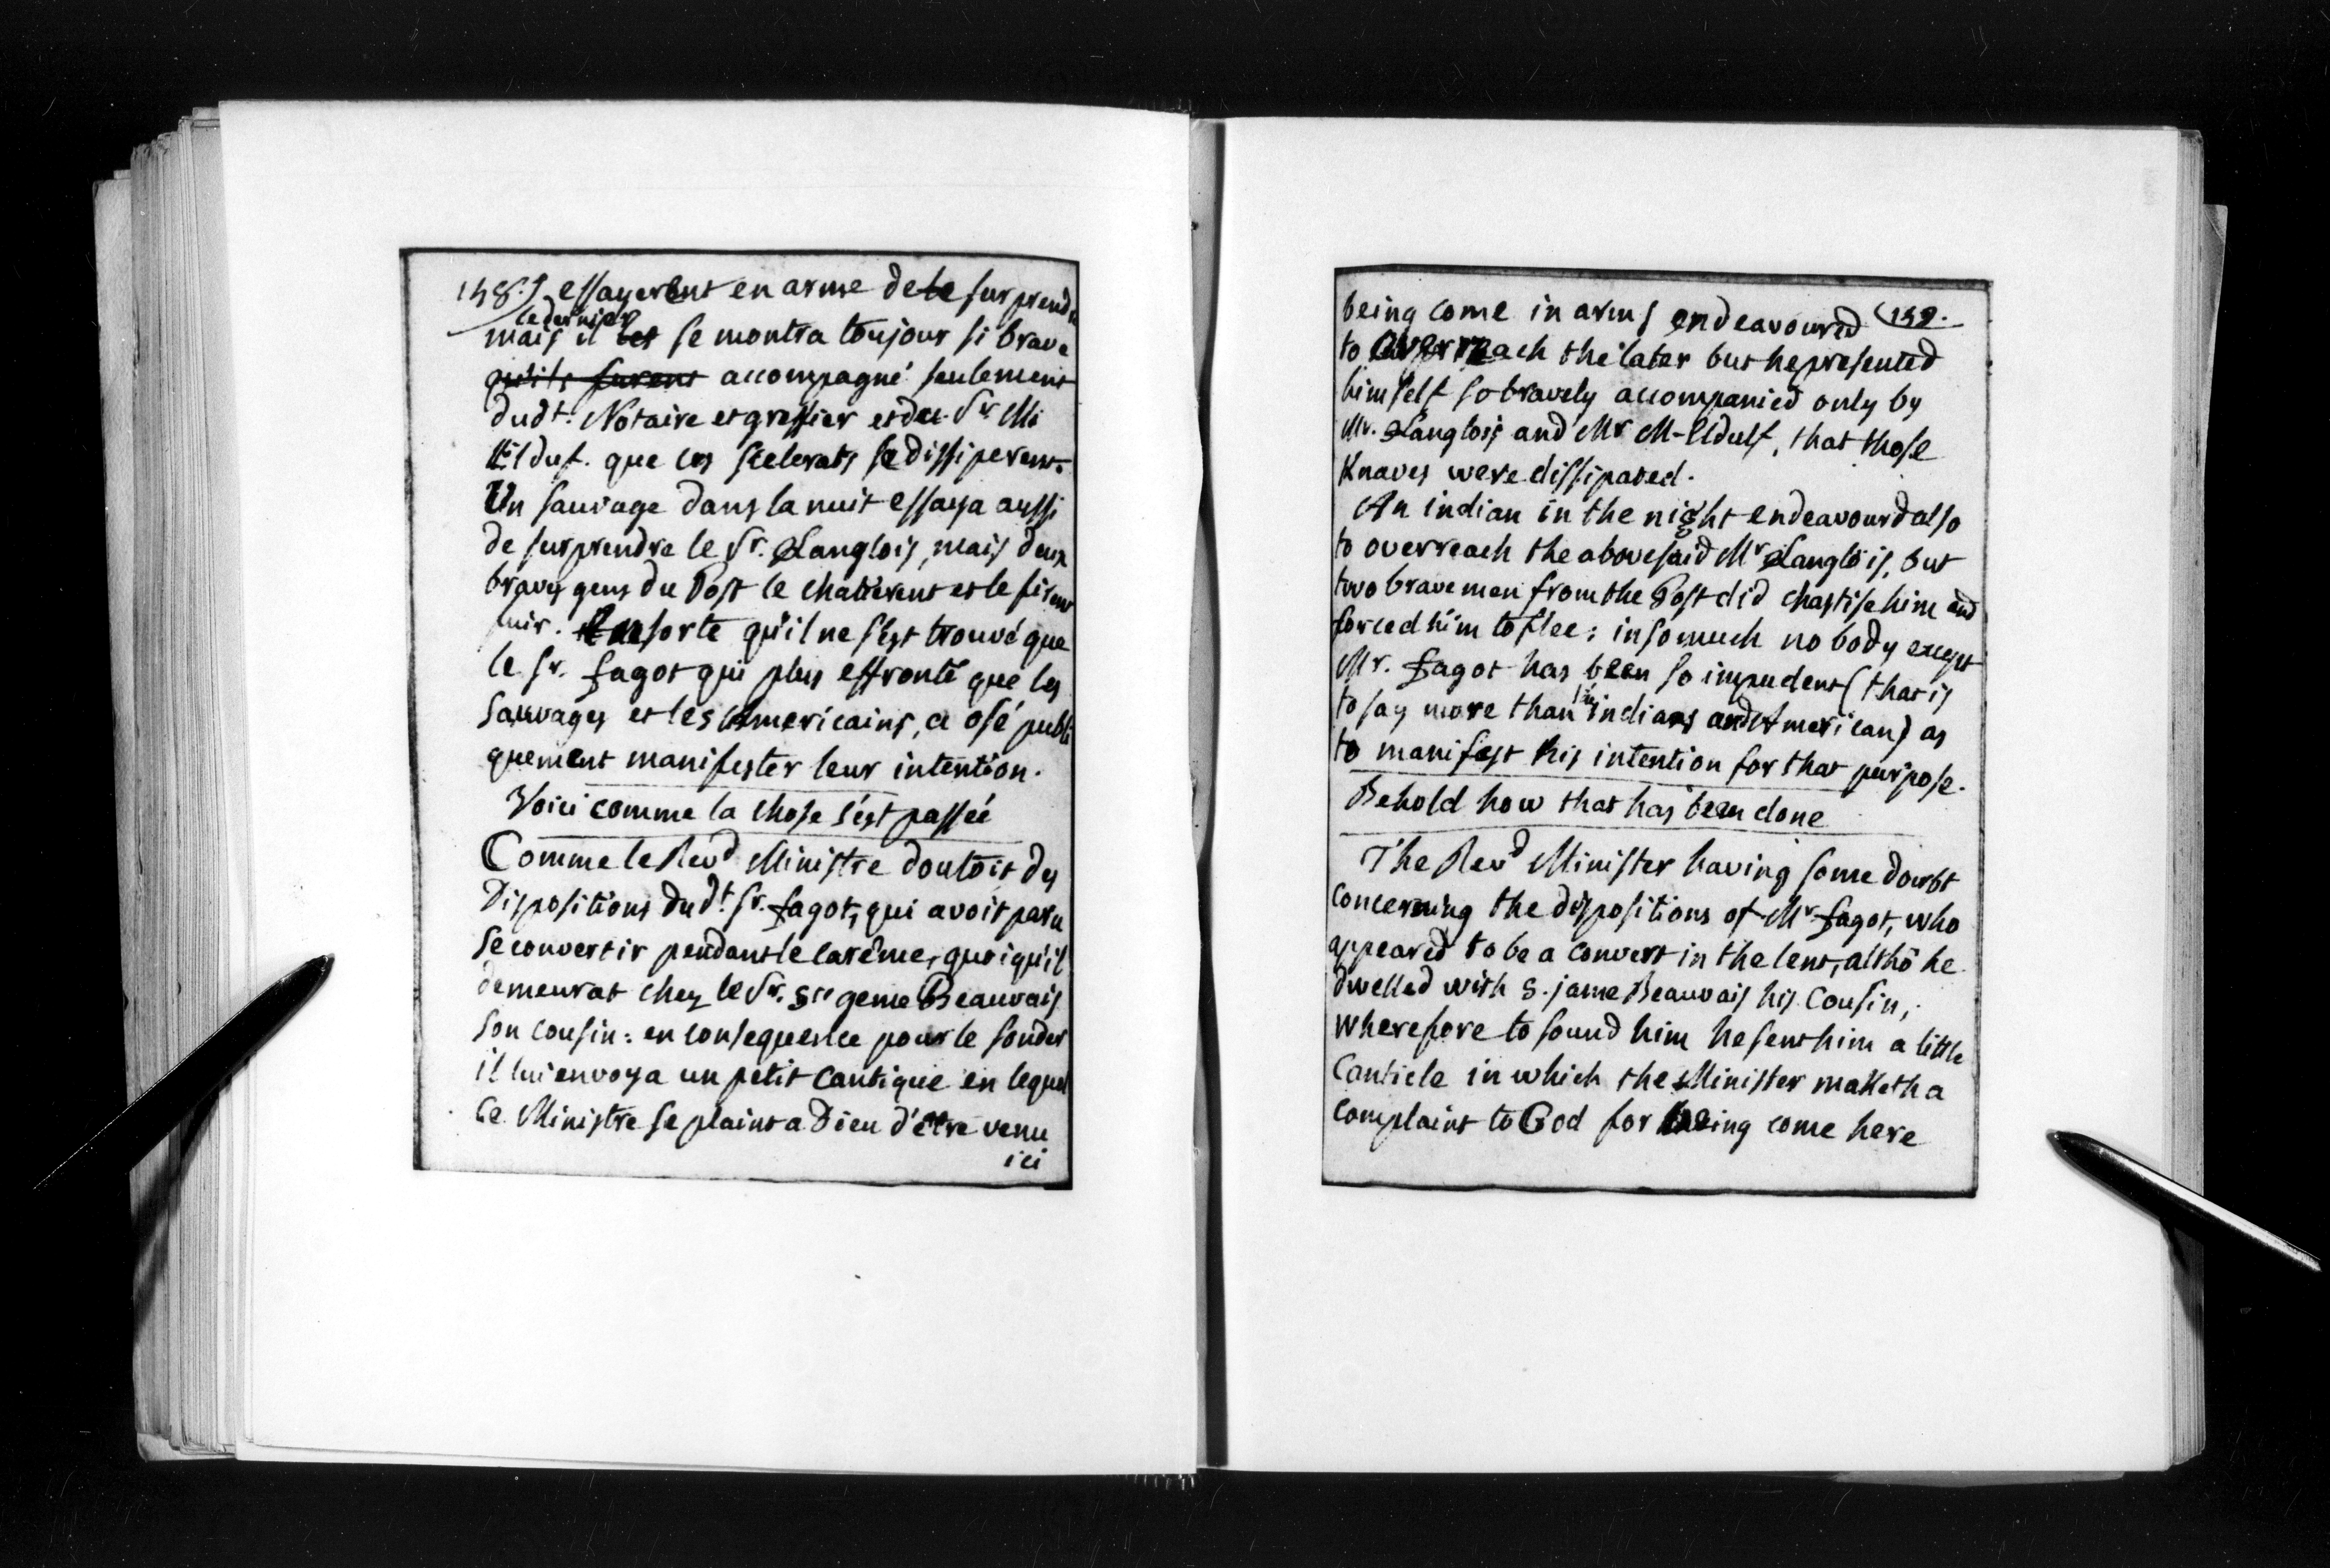 158. essayerent en arme de le surprendre
ce dernier
mais il les se montra toujour si brave
qu'ils furent accompagné seulement
dudt. Notaire et greffier et du Sr. Mi
Elduf. que ces scelerats se dissiperent.
Un sauvage dans la nuit essaya aussi
de surprendre le Sr. Langlois, mais deux
braves gens du Post le chatierent et le firent
fuir. Ensorte qu'il ne s'est trouvé que
le Sr. fagot qui plus effronté que les
Sauvages et les Americains, a osé publi
quement manifester leur intention.
Voici comme la chose s'est passée
Comme le Revd Ministre doutoit des
Dispositions dudt. Sr. fagot, qui avoit paru
se convertir pendant le carême, quoiqu'il
demeurat chez le Sr. Ste geme Beauvais
son cousin: en consequence pour le sonder
il lui envoya un petit Cantique en lequel
ce Ministre se plaint a Dieu d'être venu
ici
being come in arms endeavoured 159.
to overreach the later but he presented
himself so bravely accompanied only by
Mr. Langlois and Mr M-Elduff, that those
Knaves were dissipated.
An indian in the night endeavourd also
to overreach the abovesaid Mr Langlois, but
two brave men from the Post did chastise him and
forced him to flee; insomuch no body except
Mr. fagot has been so impudent (that is
to say more than the indians and American) as
to manifest his intention for that purpose.
Behold how that has been done
The Revd Minister having some doubt
concerning the dispositions of Mr fagot, who
appeared to be a convert in the lent, altho he
dwelled with S. jame Beauvais his Cousin,
wherefore to sound him he sent him a little
Canticle in which the Minister maketh a
complaint to God for being come here